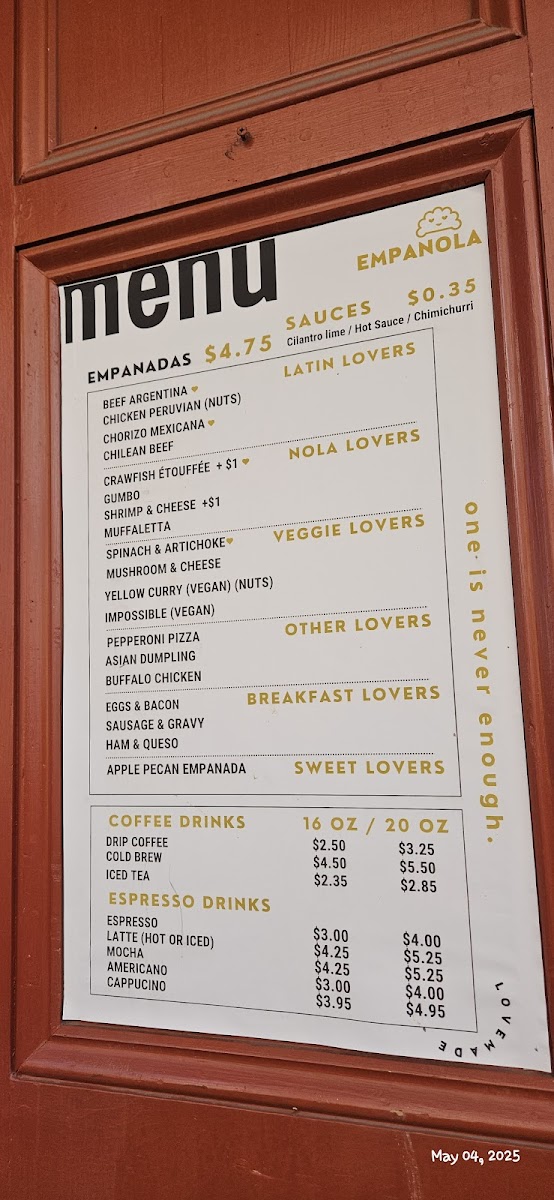 menu
EMPANOLA
EMPANADAS $4.75
SAUCES $0.35
Cilantro lime / Hot Sauce / Chimichurri
LATIN LOVERS
BEEF ARGENTINA
CHICKEN PERUVIAN (NUTS)
CHORIZO MEXICANA
CHILEAN BEEF
NOLA LOVERS
CRAWFISH ÉTOUFFÉE + $1
GUMBO
SHRIMP & CHEESE +$1
MUFFALETTA
VEGGIE LOVERS
SPINACH & ARTICHOKE
MUSHROOM & CHEESE
YELLOW CURRY (VEGAN) (NUTS)
IMPOSSIBLE (VEGAN)
OTHER LOVERS
PEPPERONI PIZZA
ASIAN DUMPLING
BUFFALO CHICKEN
BREAKFAST LOVERS
EGGS & BACON
SAUSAGE & GRAVY
HAM & QUESO
APPLE PECAN EMPANADA SWEET LOVERS
one is never enough.
COFFEE DRINKS 16 OZ / 20 OZ
DRIP COFFEE $2.50 $3.25
COLD BREW $4.50 $5.50
ICED TEA $2.35 $2.85
ESPRESSO DRINKS
ESPRESSO $3.00 $4.00
LATTE (HOT OR ICED) $4.25 $5.25
MOCHA $4.25 $5.25
AMERICANO $3.00 $4.00
CAPPUCINO $3.95 $4.95
LOVEMADE
May 04, 2025